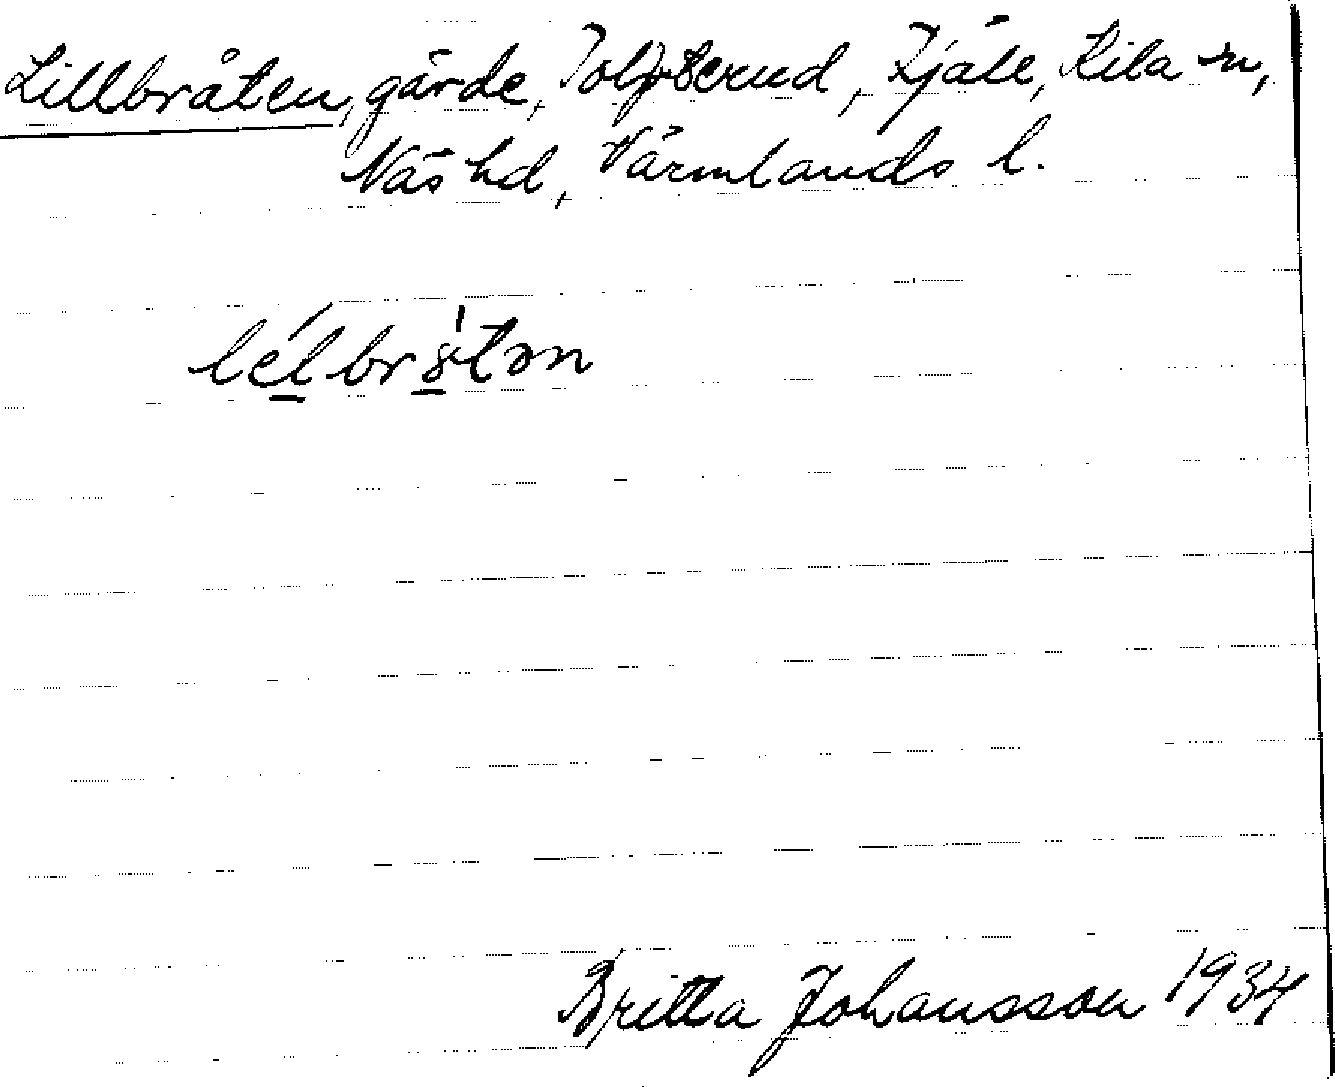 Lillbråten, gärde, Tolpterud, Fjäle, Kila sn,
Näs hd, Värmlands l.
lélbrȣ̍tən
Britta Johansson 1934